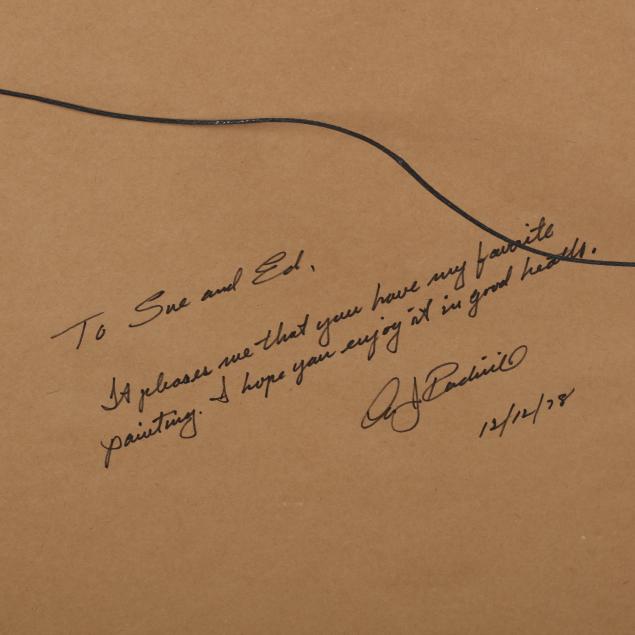 To Sue and Ed,
It pleases me that you have my favorite
painting. I hope you enjoy it in good health.
12/12/78